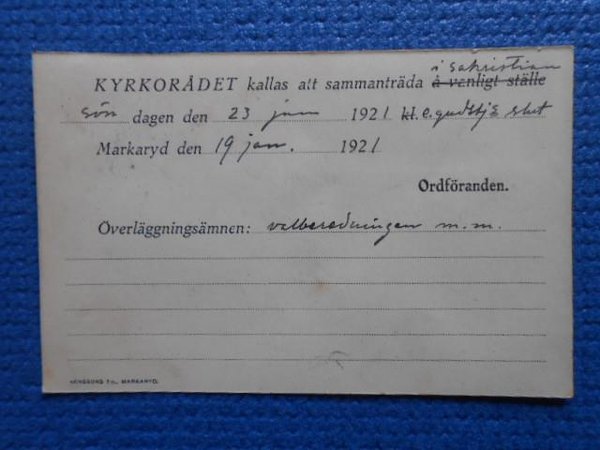 i sakristian
KYRKORÅDET kallas att sammanträda å vanligt ställe
Sön dagen den 23 jan 1921 kl. e. gudstj:s slut
Markaryd den 19 jan. 1921
Ordföranden.
Överläggningsämnen: valberedningen m.m.
MARKARYD.